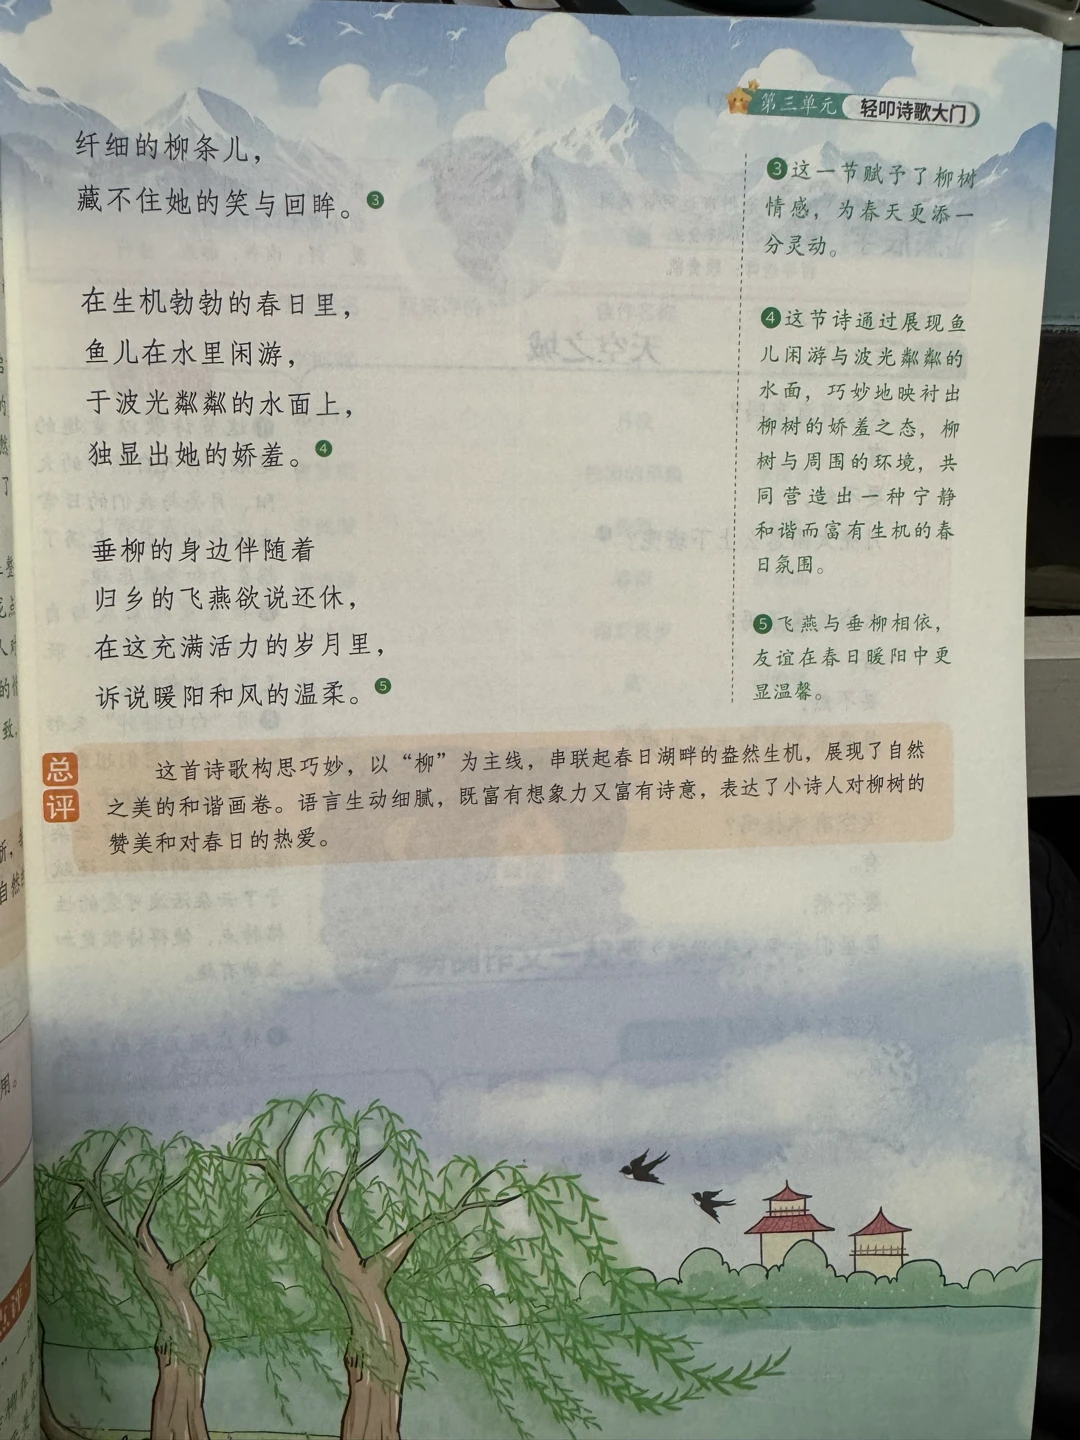 第三单元 轻叩诗歌大门
纤细的柳条儿，
藏不住她的笑与回眸。❸
在生机勃勃的春日里，
鱼儿在水里闲游，
于波光粼粼的水面上，
独显出她的娇羞。❹
垂柳的身边伴随着
归乡的飞燕欲说还休，
在这充满活力的岁月里，
诉说暖阳和风的温柔。❺
❸这一节赋予了柳树
情感，为春天更添一
分灵动。
❹这节诗通过展现鱼
儿闲游与波光粼粼的
水面，巧妙地映衬出
柳树的娇羞之态，柳
树与周围的环境，共
同营造出一种宁静
和谐而富有生机的春
日氛围。
❺飞燕与垂柳相依，
友谊在春日暖阳中更
显温馨。
总评
这首诗歌构思巧妙，以“柳”为主线，串联起春日湖畔的盎然生机，展现了自然
之美的和谐画卷。语言生动细腻，既富有想象力又富有诗意，表达了小诗人对柳树的
赞美和对春日的热爱。